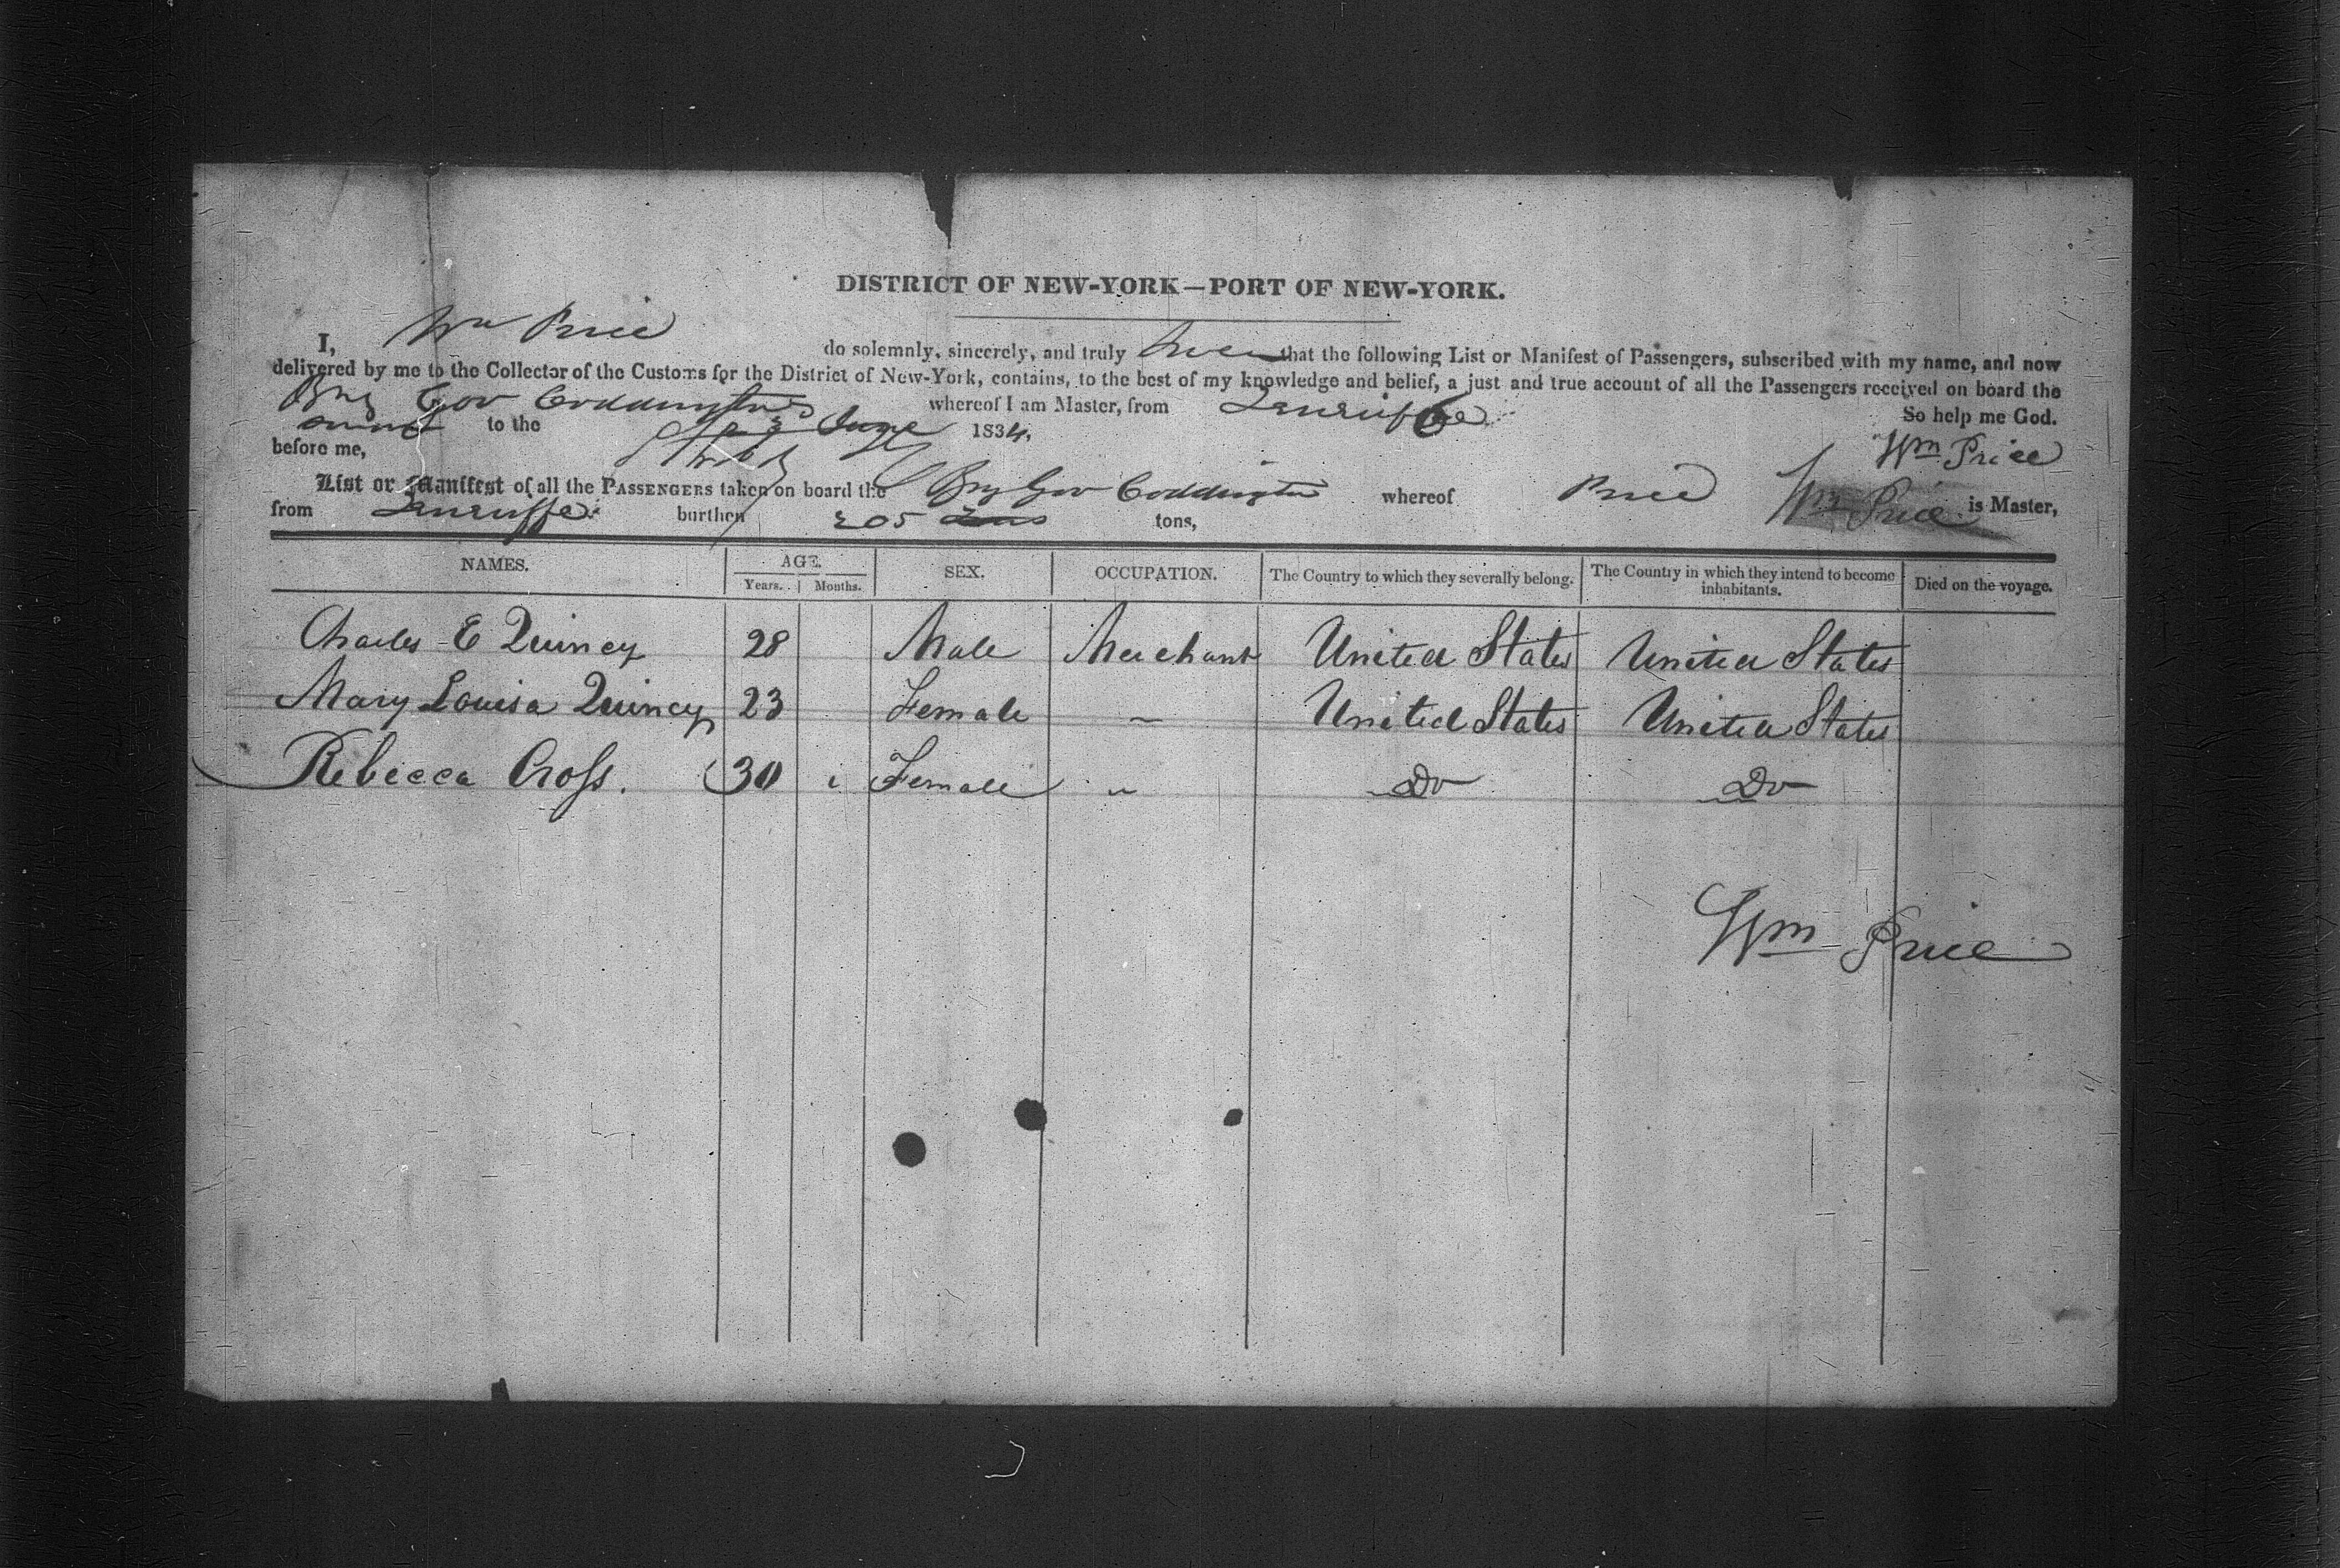 DISTRICT OF NEW-YORK—PORT OF NEW-YORK.
I, Wm Price do solemnly, sincerely, and truly swear that the following List or Manifest of Passengers, subscribed with my name, and now
delivered by me to the Collector of the Customs for the District of New-York, contains, to the best of my knowledge and belief, a just and true account of all the Passengers received on board the
Brig Gov Coddington whereof I am Master, from Teneriffe So help me God.
Sworn to the 3 June 1834,
before me, Wm Price
List or Manifest of all the PASSENGERS taken on board the Brig Gov Coddington whereof Price Wm Price is Master,
from Teneriffe burthen 205 tons,
NAMES. AGE. SEX. OCCUPATION. The Country to which they severally belong. The Country in which they intend to become inhabitants. Died on the voyage.
Years. Months.
Charles E Quincy 28 Male Merchant United States United States
Mary Louisa Quincy 23 Female " United States United States
Rebecca Cross. 30 Female " Do Do
Wm Price